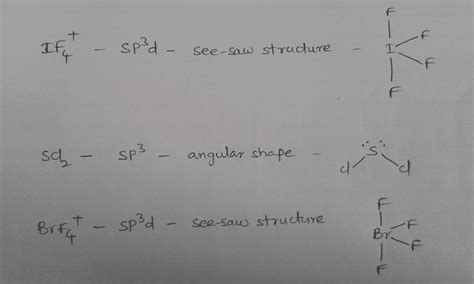 IF₄⁺ – sp³d – see-saw structure –
F
I
F
F
F
SCl₂ – sp³ – angular shape –
S
Cl Cl
BrF₄⁺ – sp³d – see-saw structure
F
Br
F
F
F